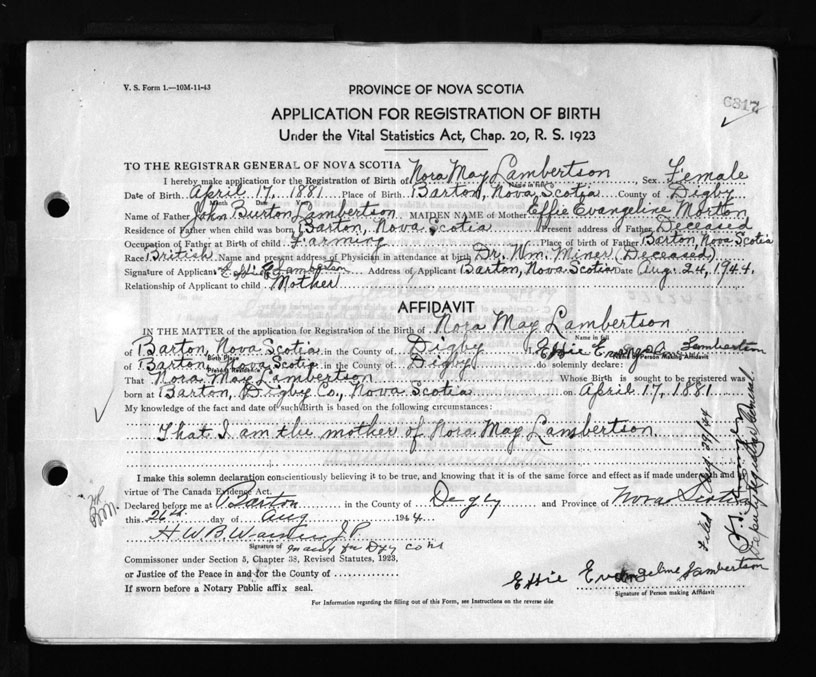 V. S. Form 1.—10M-11-43
PROVINCE OF NOVA SCOTIA
APPLICATION FOR REGISTRATION OF BIRTH
Under the Vital Statistics Act, Chap. 20, R. S. 1923
TO THE REGISTRAR GENERAL OF NOVA SCOTIA
I hereby make application for the Registration of Birth of Nora May Lambertson Sex Female
Date of Birth April 17, 1881 Place of Birth Barton, Nova Scotia County of Digby
Name of Father John Burton Lambertson MAIDEN NAME of Mother Effie Evangeline Morton
Residence of Father when child was born Barton, Nova Scotia Present address of Father Deceased
Occupation of Father at Birth of child Farming Place of birth of Father Barton, Nova Scotia
Race British Name and present address of Physician in attendance at birth Dr. Wm. Miner (Deceased)
Signature of Applicant Effie E Lambertson Address of Applicant Barton, Nova Scotia Date Aug. 24, 1944.
Relationship of Applicant to child Mother
AFFIDAVIT
IN THE MATTER of the application for Registration of the Birth of Nora May Lambertson
Name in full
of Barton, Nova Scotia in the County of Digby I, Effie Lambertson
Birth Place Name of Person making Affidavit
of Barton, Nova Scotia in the County of Digby do solemnly declare:
Present Residence
That Nora May Lambertson Whose Birth is sought to be registered was
born at Barton, Digby Co., Nova Scotia on April 17, 1881
My knowledge of the fact and date of such Birth is based on the following circumstances:
That I am the mother of Nora May Lambertson.
I make this solemn declaration conscientiously believing it to be true, and knowing that it is of the same force and effect as if made under oath and
virtue of The Canada Evidence Act.
Declared before me at Barton in the County of Digby and Province of Nova Scotia
this 26th day of Aug 1944.
H W B Warner J.P.
Signature of
Commissoner under Section 5, Chapter 38, Revised Statutes, 1923,
or Justice of the Peace in and for the County of
If sworn before a Notary Public affix seal.
Effie Evangeline Lambertson
Signature of Person making Affidavit
For Information regarding the filling out of this Form, see Instructions on the reverse side
Filed Aug. 29/44
Deputy Registrar General